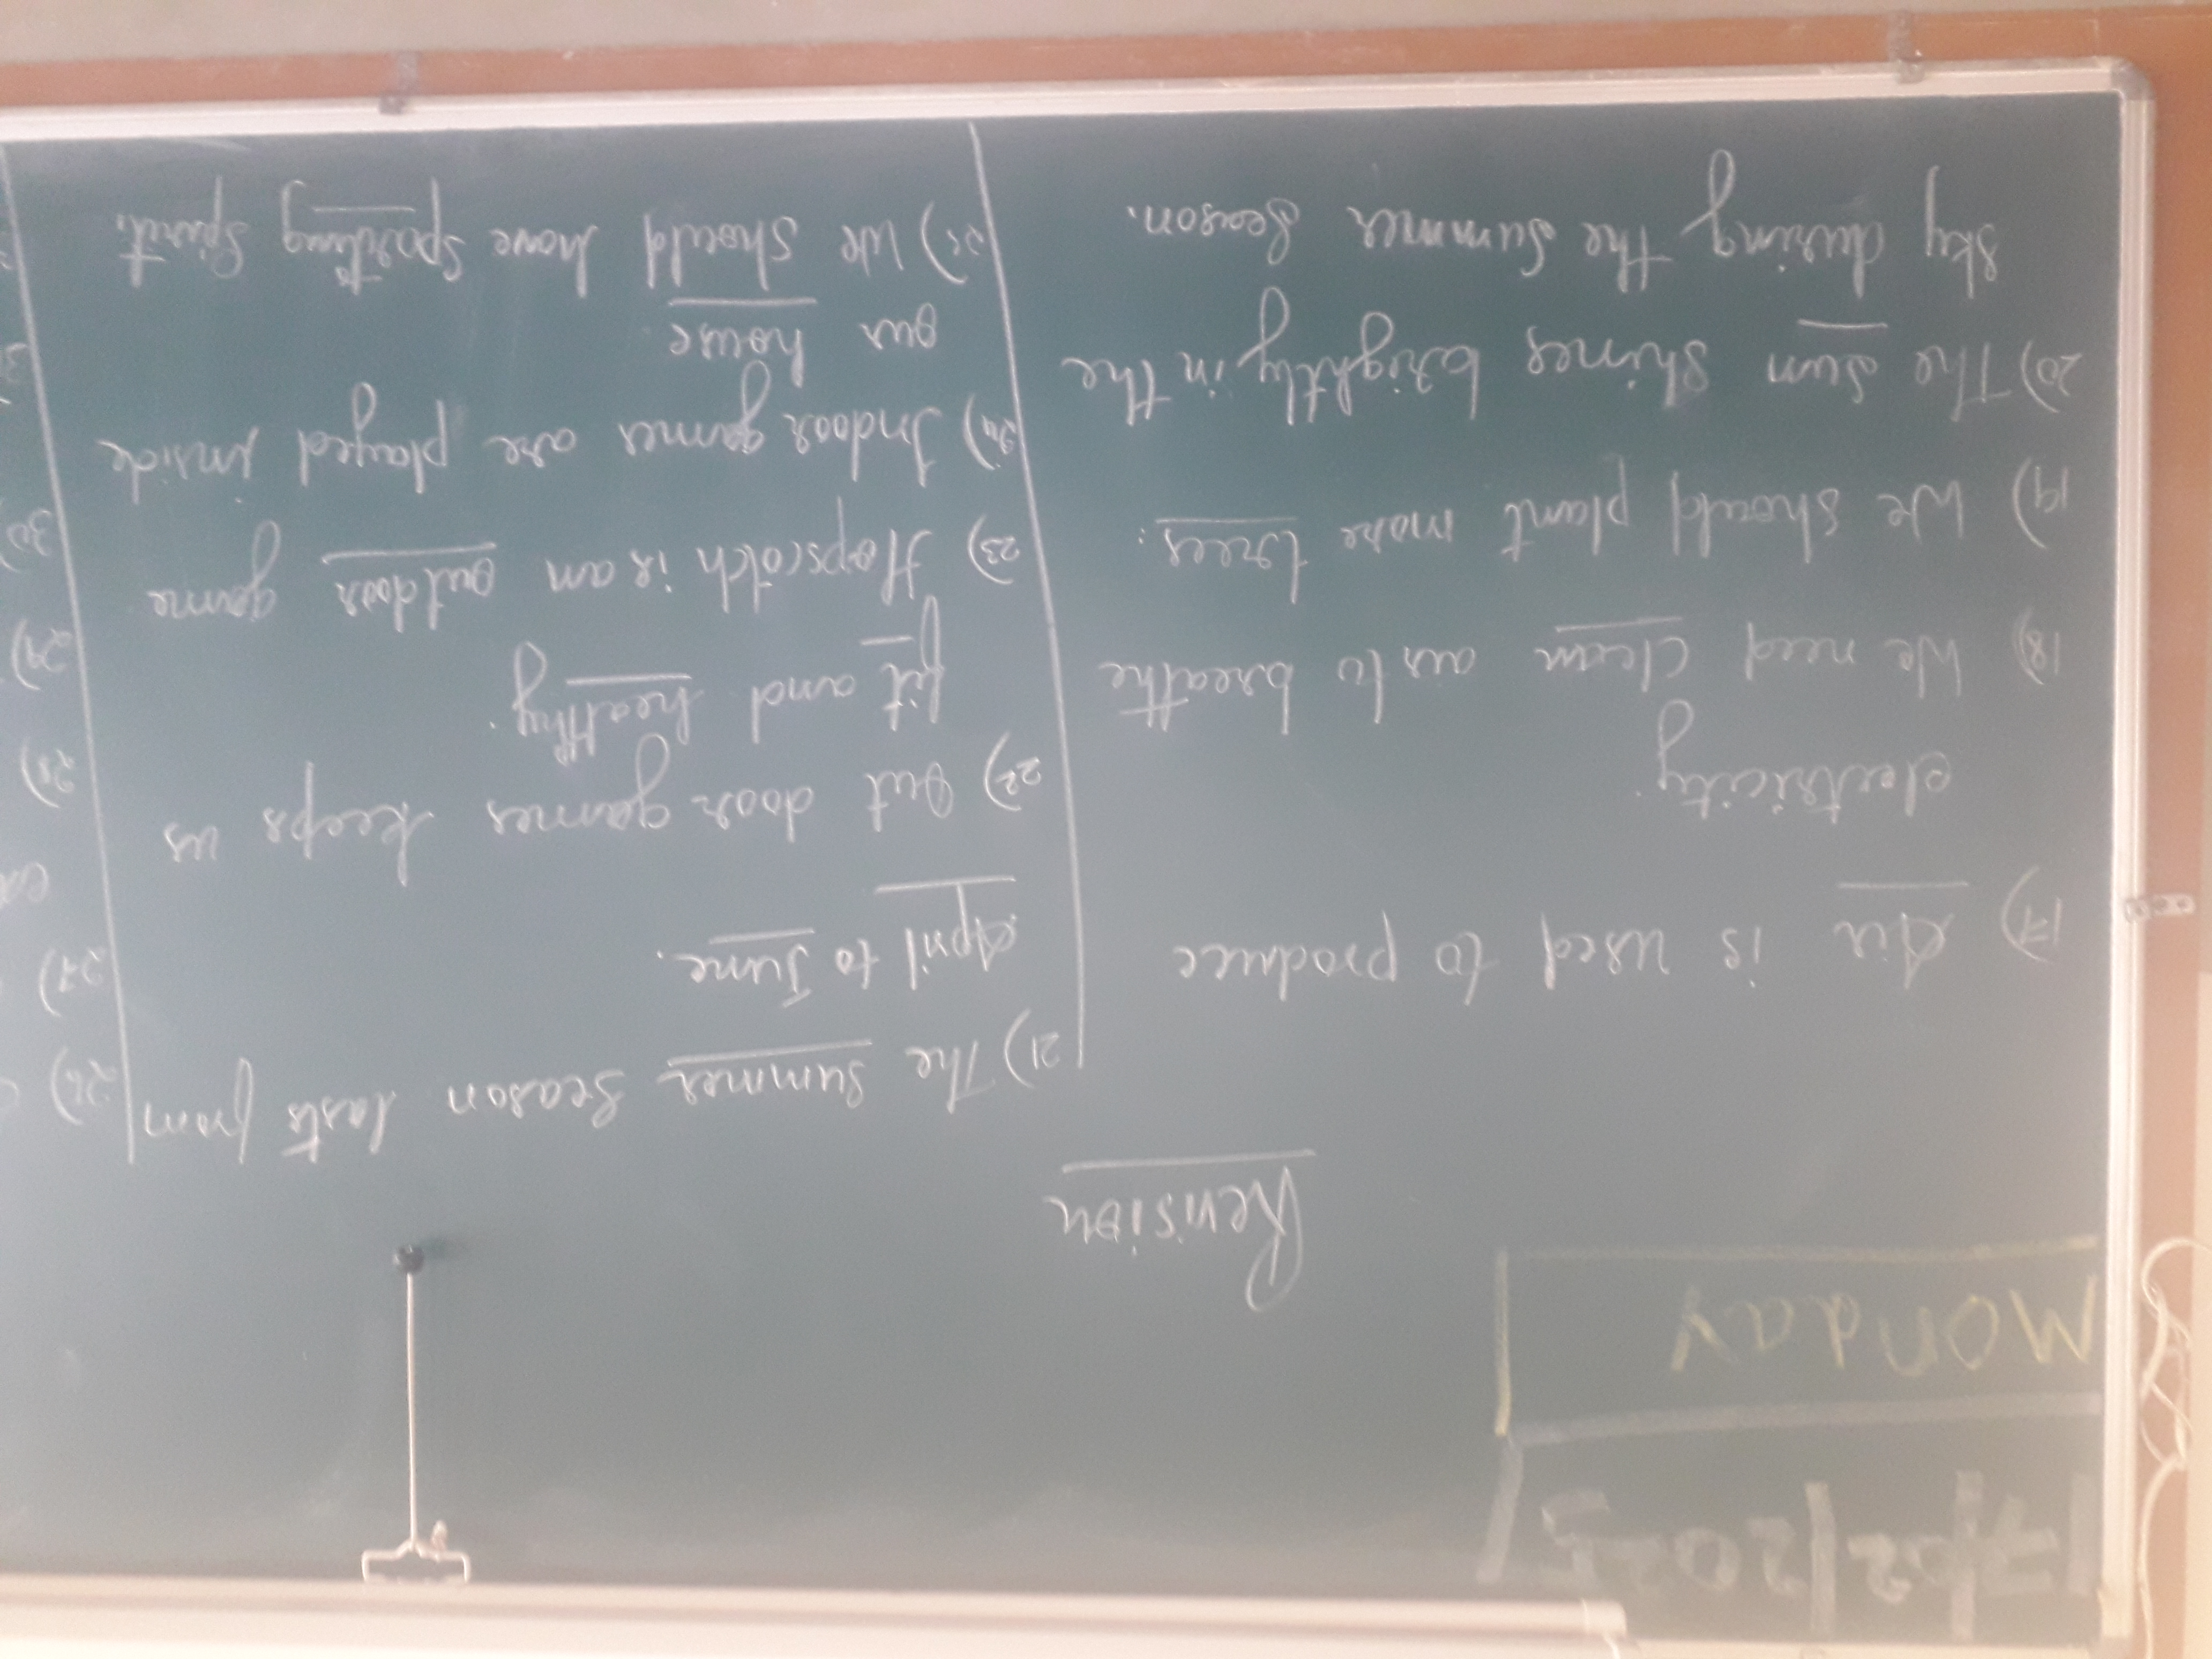 17/02/2025
Monday
Revision
17) Air is used to produce
electricity.
18) We need clean air to breathe
19) We should plant more trees.
20) The sun shines brightly in the
sky during the summer season.
21) The summer season lasts from
April to June.
22) Out door games keeps us
fit and healthy.
23) Hopscotch is an outdoor game
24) Indoor games are played inside
our house.
25) We should have sporting spirit.
26)
27)
28)
29)
30)